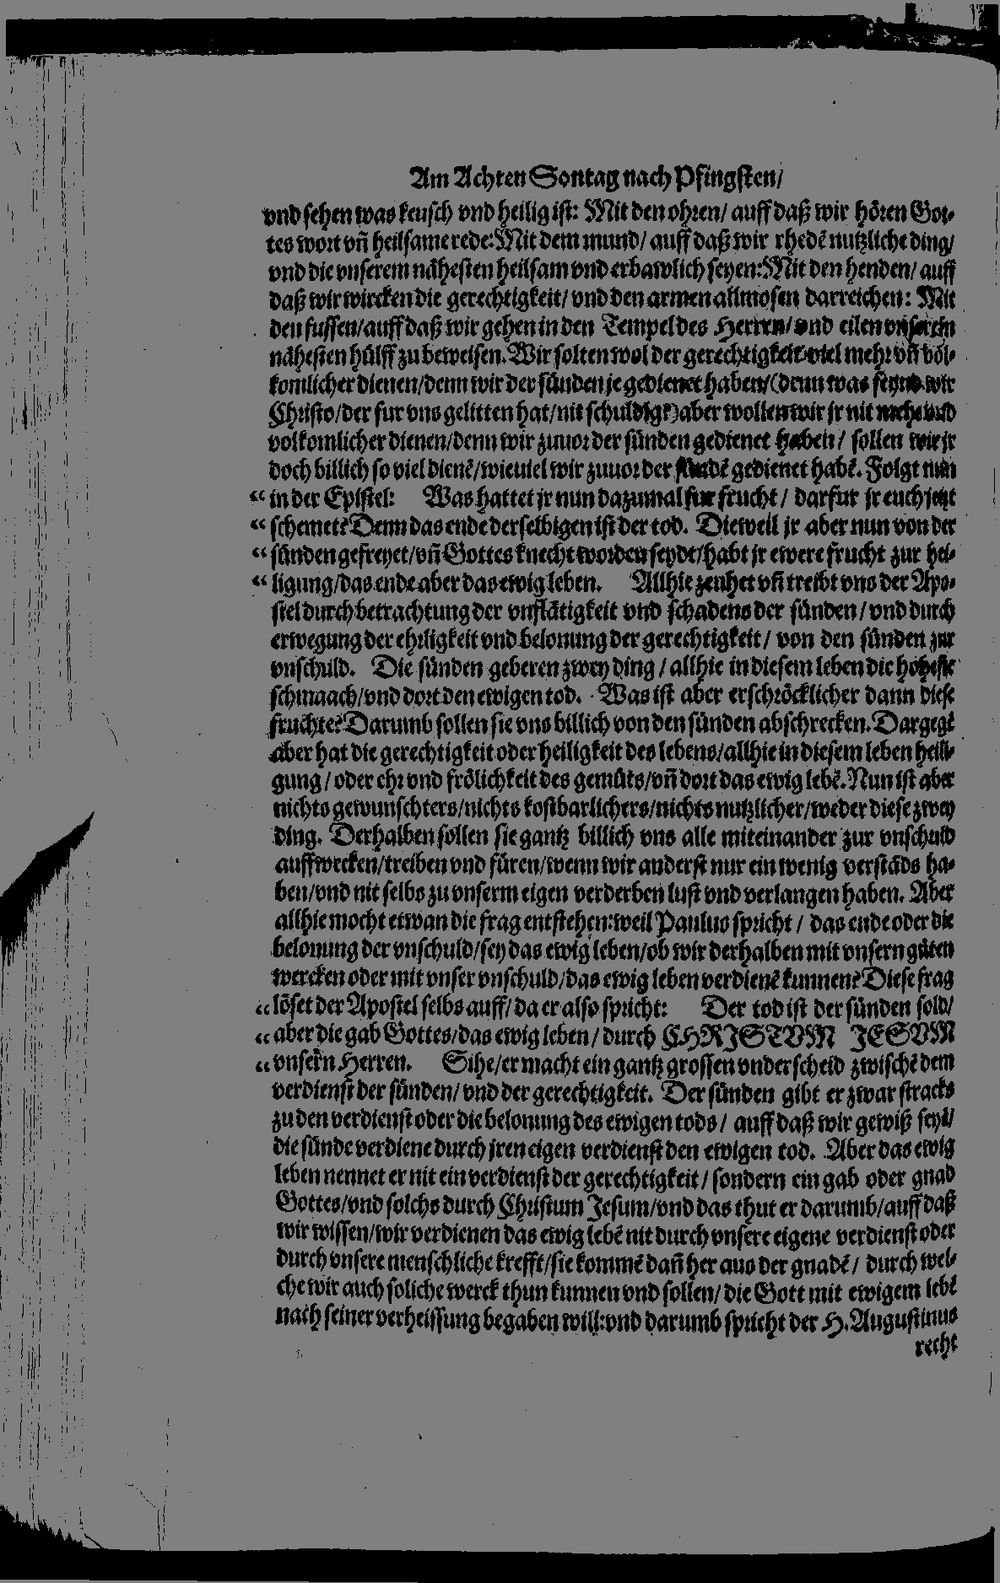 Am Achten Sontag nach Pfingsten/
vnd sehen was keusch vnd heilig ist: Mit den ohren/ auff daß wir hören Got-
tes wort vñ heilsame rede: Mit dem mund/ auff daß wir rhedē nutzliche ding/
vnd die vnserem nähesten heilsam vnd erbawlich seyen: Mit den henden/ auff
daß wir wircken die gerechtigkeit/ vnd den armen allmosen darreichen: Mit
den fussen/ auff daß wir gehen in den Tempel des Herren/ vnd eilen vnserem
nähesten hülff zu beweisen. Wir solten wol der gerechtigkeit viel mehr vñ vol-
komlicher dienen/ denn wir der sünden je gedienet haben/ (denn was seynd wir
Christo/ der fur vns gelitten hat/ nit schuldig?) aber wollen wir jr nit mehr vnd
volkomlicher dienen/ denn wir zuuor der sünden gedienet haben/ sollen wir jr
doch billich so viel dienē/ wieuiel wir zuuor der sündē gedienet habē. Folgt nun
“ in der Epistel: Was hattet jr nun dazumal fur frucht/ darfur jr euch jetzt
“ schemet? Denn das ende derselbigen ist der tod. Dieweil jr aber nun von der
“ sünden gefreyet/ vñ Gottes knecht worden seydt/ habt jr ewere frucht zur hei-
“ ligung/ das ende aber das ewig leben. Allhie zeuhet vñ treibt vns der Apo-
stel durch betrachtung der vnflätigkeit vnd schadens der sünden/ vnd durch
erwegung der ehrligkeit vnd belonung der gerechtigkeit/ von den sünden zur
vnschuld. Die sünden geberen zwey ding/ allhie in diesem leben die hoheste
schmaach/ vnd dort den ewigen tod. Was ist aber erschröcklicher dann diese
fruchte? Darumb sollen sie vns billich von den sünden abschrecken. Dargegē
aber hat die gerechtigkeit oder heiligkeit des lebens/ allhie in diesem leben heili-
gung/ oder ehr vnd frölichkeit des gemüts/ vñ dort das ewig lebē. Nun ist aber
nichts gewunschters/ nichts kostbarlichers/ nichts nutzlicher/ weder diese zwey
ding. Derhalben sollen sie gantz billich vns alle miteinander zur vnschuld
auffwecken/ treiben vnd füren/ wenn wir anderst nur ein wenig verstāds ha-
ben/ vnd nit selbs zu vnserm eigen verderben lust vnd verlangen haben. Aber
allhie mocht etwan die frag entstehen: weil Paulus spricht/ das ende oder die
belonung der vnschuld/ sey das ewig leben/ ob wir derhalben mit vnsern güten
wercken oder mit vnser vnschuld/ das ewig leben verdienē kunnen? Diese frag
“ löset der Apostel selbs auff/ da er also spricht: Der tod ist der sünden sold/
“ aber die gab Gottes/ das ewig leben/ durch CHRISTVM JESVM
“ vnsern Herren. Sihe/ er macht ein gantz grossen vnderscheid zwischē dem
verdienst der sünden/ vnd der gerechtigkeit. Der sünden gibt er zwar stracks
zu den verdienst oder die belonung des ewigen tods/ auff daß wir gewiß seyē/
die sünde verdiene durch jren eigen verdienst den ewigen tod. Aber das ewig
leben nennet er nit ein verdienst der gerechtigkeit/ sondern ein gab oder gnad
Gottes/ vnd solchs durch Christum Jesum/ vnd das thut er darumb/ auff daß
wir wissen/ wir verdienen das ewig lebē nit durch vnsere eigene verdienst oder
durch vnsere menschliche krefft/ sie kommē dañ her aus der gnadē/ durch wel-
che wir auch soliche werck thun kunnen vnd sollen/ die Gott mit ewigem lebē
nach seiner verheissung begaben will: vnd darumb spricht der H. Augustinus
recht